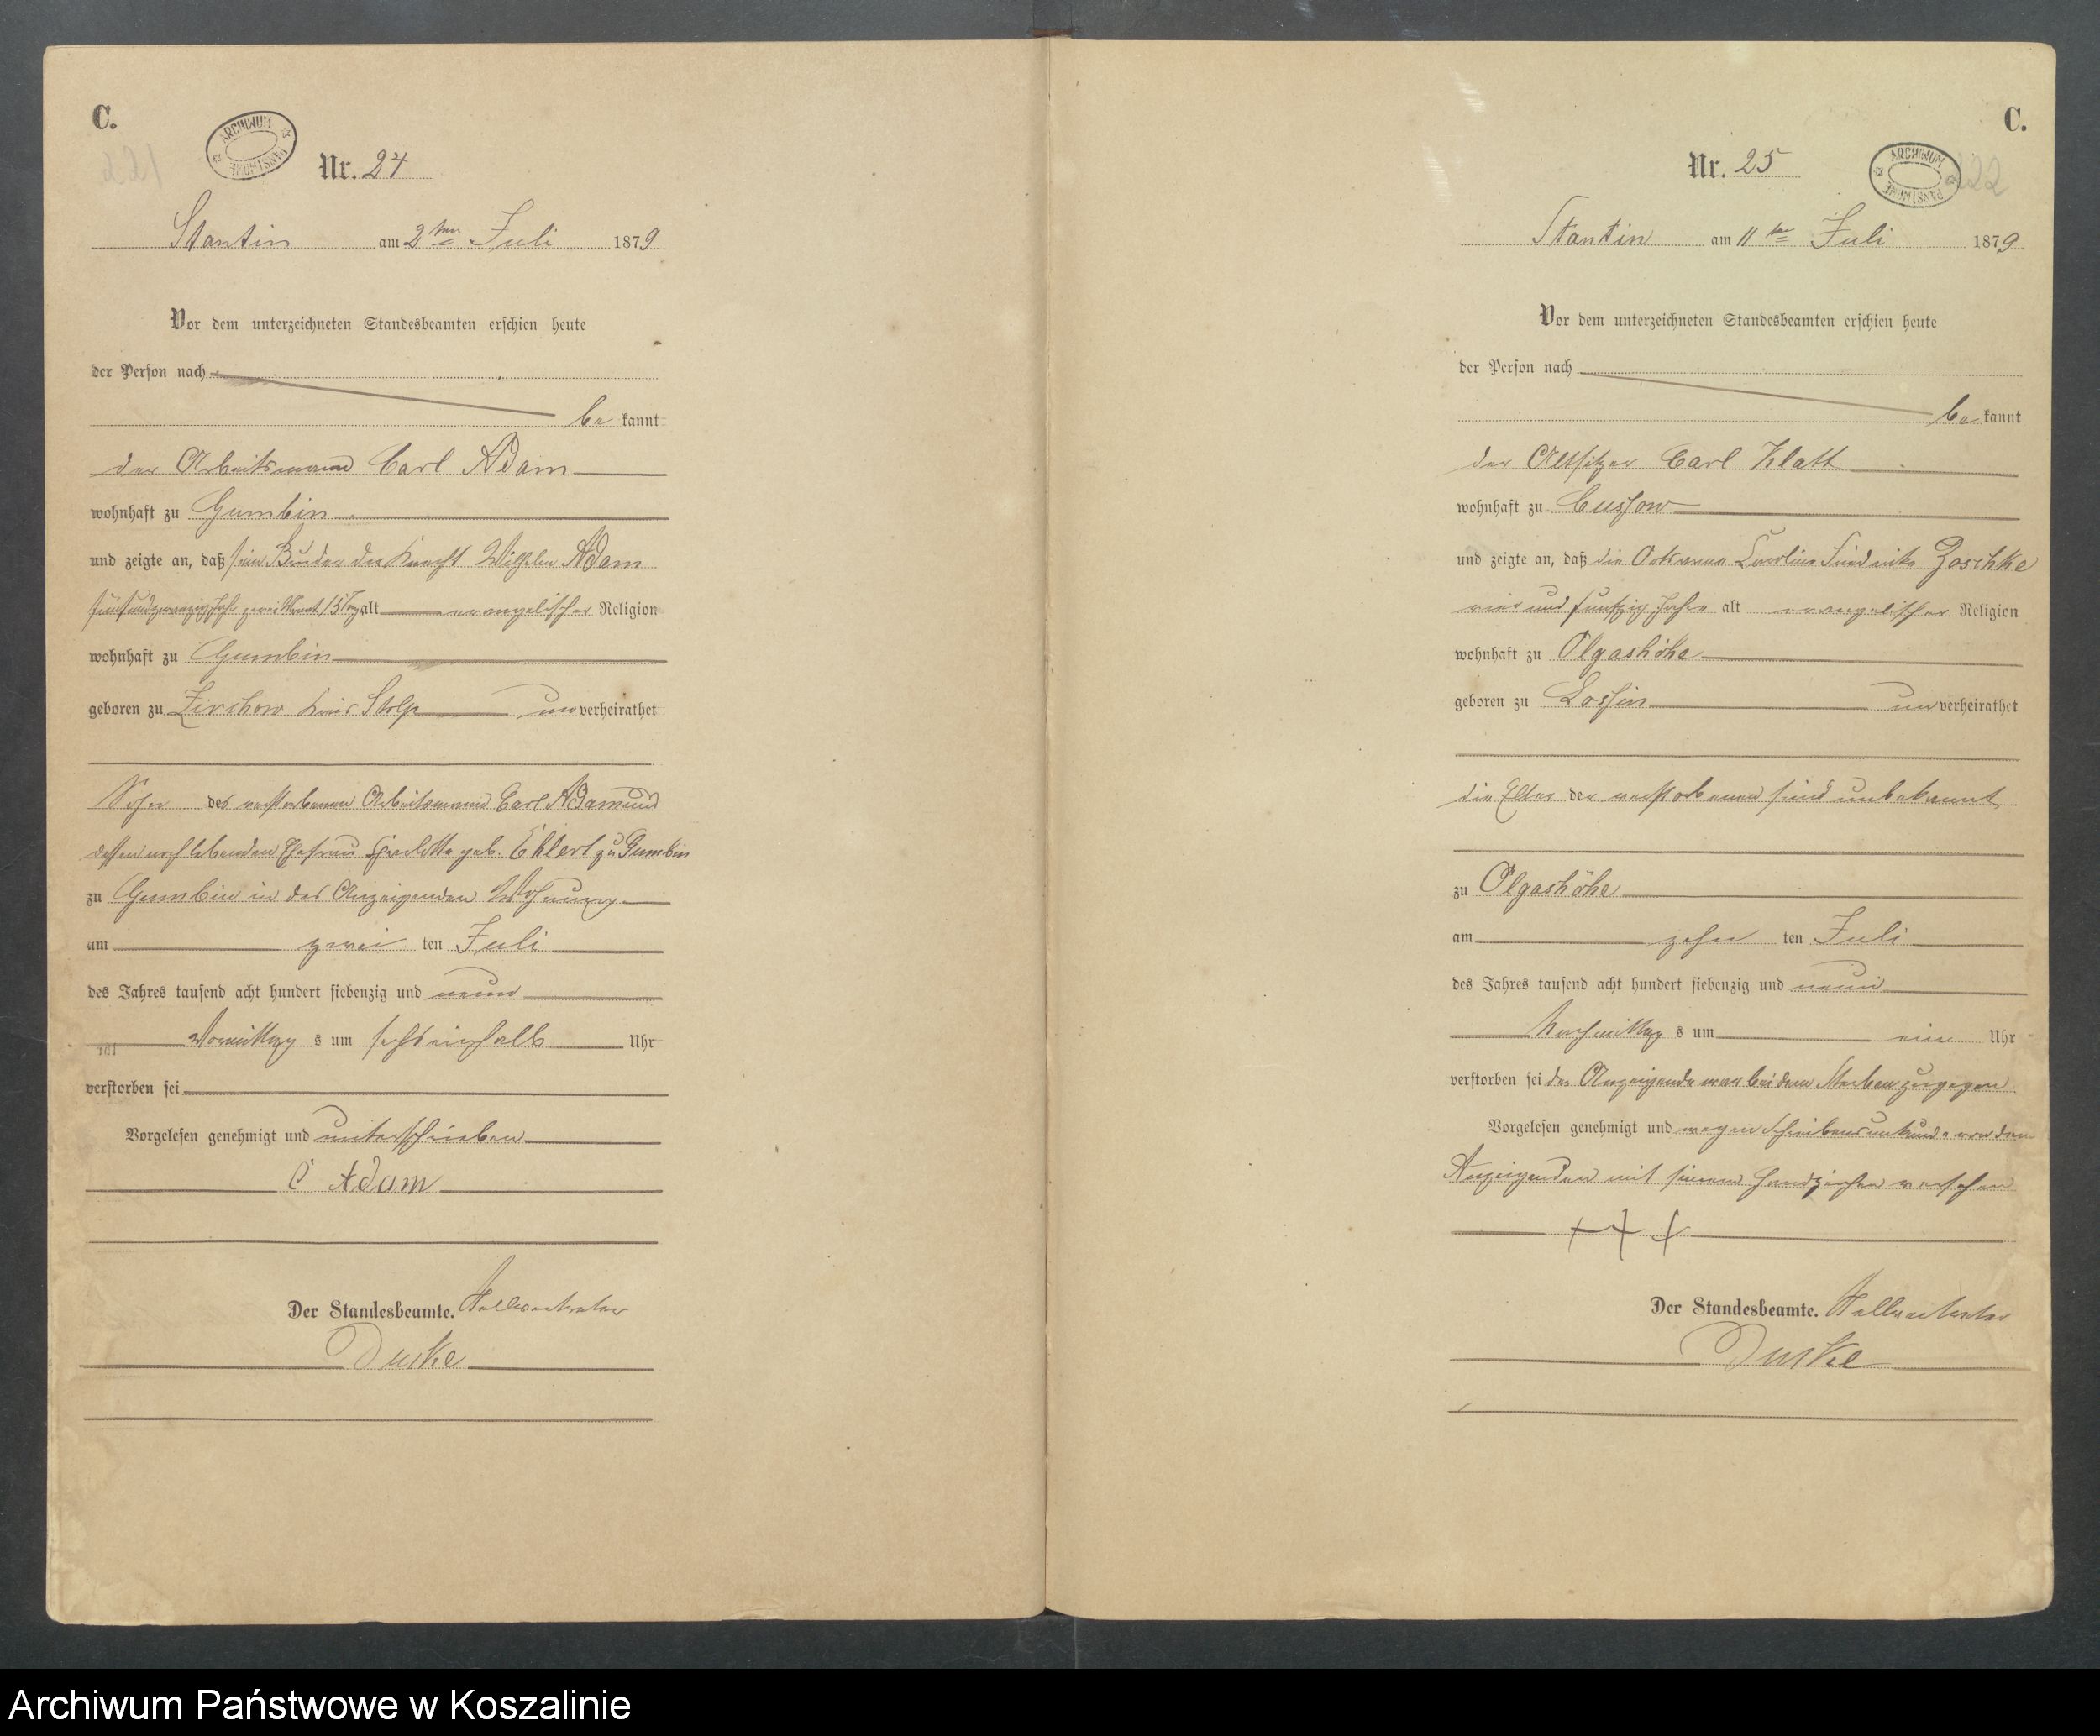 C.
ARCHIWUM PAŃSTWOWE
Nr. 24
Stantin am 2ten Juli 1879
Vor dem unterzeichneten Standesbeamten erschien heute
der Person nach
be kannt
der Arbeitsmann Carl Adam
wohnhaft zu Gumbin
und zeigte an, daß sein Bruder der Knecht Wilhelm Adam
fünfundzwanzig Jahr zwei Monat 15 Tag alt evangelischer Religion
wohnhaft zu Gumbin
geboren zu Zirchow Kreis Stolp un verheirathet
Sohn des verstorbenen Arbeitsmann Carl Adam und
dessen noch lebenden Ehefrau geb. Ehlert zu Gumbin
zu Gumbin in des Anzeigenden Wohnung
am zwei ten Juli
des Jahres tausend acht hundert siebenzig und neun
Vormittag s um sechseinhalb Uhr
verstorben sei
Vorgelesen genehmigt und unterschrieben
C Adam
Der Standesbeamte.
C.
Nr. 25
ARCHIWUM PAŃSTWOWE
222
Stantin am 11ten Juli 1879
Vor dem unterzeichneten Standesbeamten erschien heute
der Person nach
be kannt
der Altsitzer Carl Klatt
wohnhaft zu Cussow
und zeigte an, daß die Caroline Friederike Zoschke
vier und funfzig Jahre alt evangelischer Religion
wohnhaft zu Olgashöhe
geboren zu Lossin un verheirathet
die Elter der verstorbenen sind unbekannt
zu Olgashöhe
am zehn ten Juli
des Jahres tausend acht hundert siebenzig und neun
Nachmittag s um ein Uhr
verstorben sei der Anzeigende war bei dem Sterben zugegen
Vorgelesen genehmigt und wegen Schreibensunkunde von dem
Anzeigenden mit seinem Handzeichen versehen
+ + +
Der Standesbeamte.
Archiwum Państwowe w Koszalinie